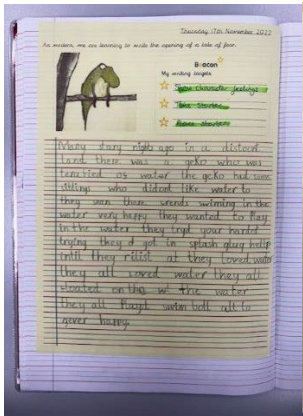 Thursday 17th November 2022
As writers, we are learning to write the opening of a tale of fear.
Beacon
My writing targets
Show character feelings
Time starter
starters
Many stary nigh ago in a distont
Land there was a geko who was
of water the geko had some
who didont like water to
they swiming in the
water very happy they wanted to Play
in the water they tryd your hardist
trying they d got in splash glug hellp
intill they at they Loved water
they all Loved water they all
on the the water
they all Playd swim ball all to
gever happy.